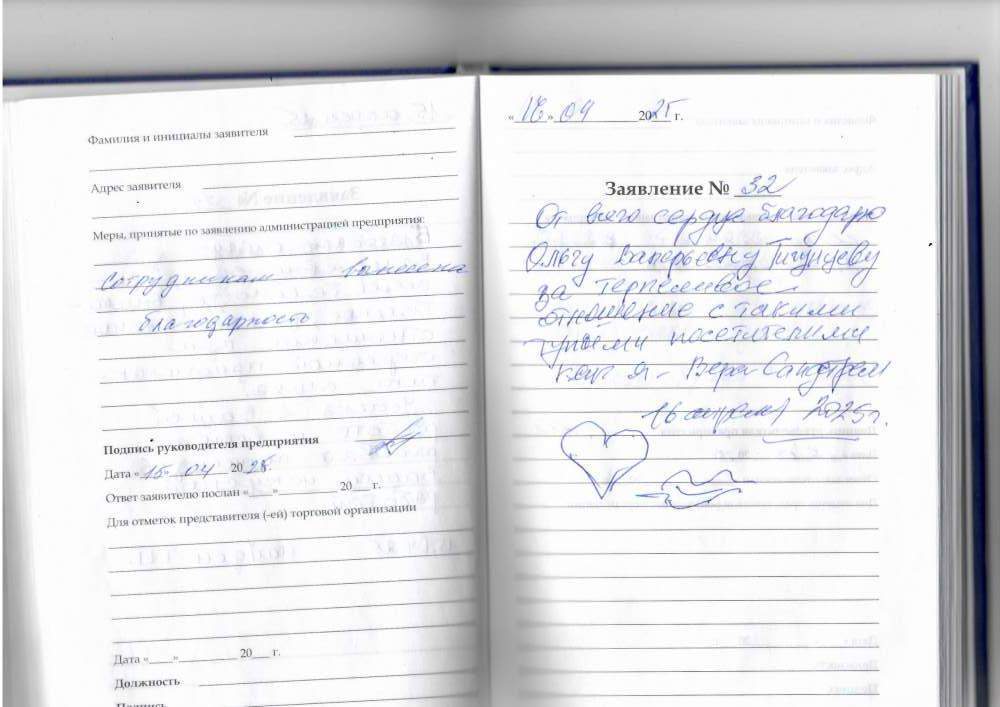 Фамилия и инициалы заявителя
Адрес заявителя
Меры, принятые по заявлению администрацией предприятия:
сотрудникам вынесена
благодарность
Подпись руководителя предприятия
Дата «15» 04 2025.
Ответ заявителю послан «___» ________ 20___ г.
Для отметок представителя (-ей) торговой организации
Дата «___» ________ 20___ г.
Должность
Подпись
«16» 04 2025 г.
Заявление № 32
От всего сердца благодарю
Ольгу Валерьевну
за терпеливое
отношение с такими
тупыми посетителями
как я - Вера
16 апреля 2025 г.